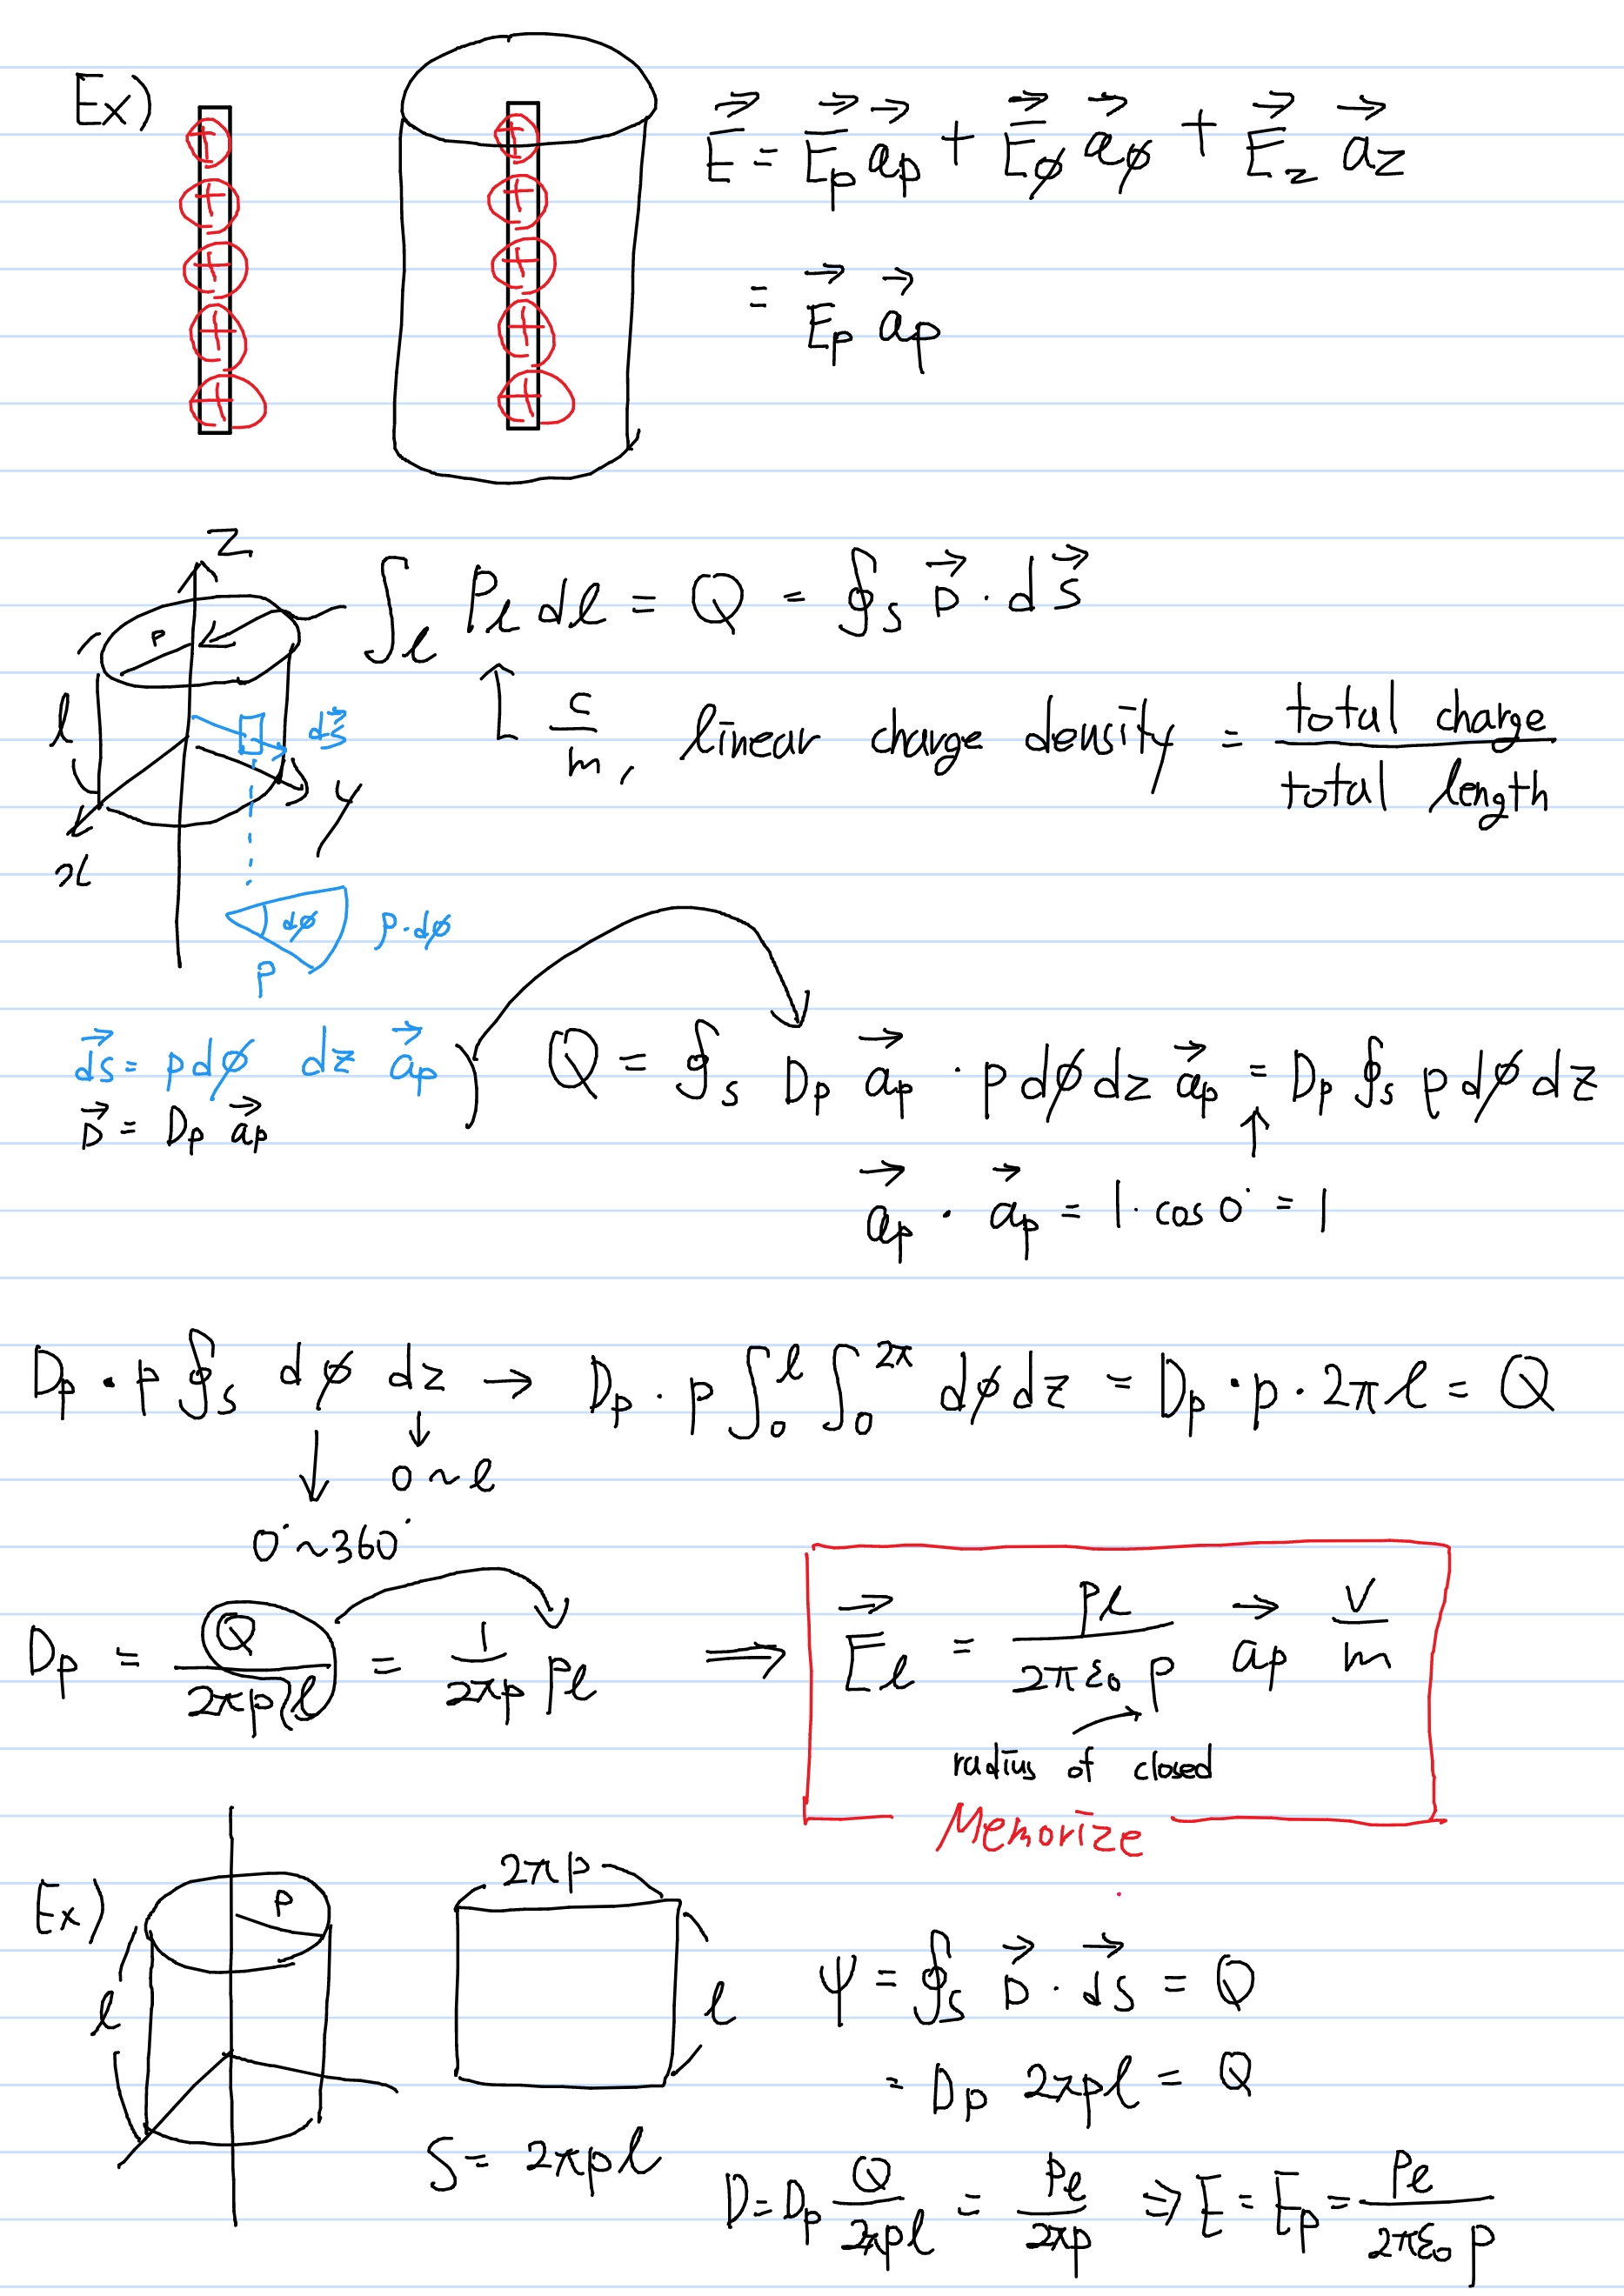 Ex)
E⃗ = E⃗ρ a⃗ρ + E⃗ø a⃗ø + E⃗z a⃗z
= E⃗ρ a⃗ρ
z
ρ
l
ds⃗
y
x
dø
ρ·dø
ρ
∫ℓ ρℓ dℓ = Q = ∮s D⃗ · ds⃗
C/m, linear charge density = total charge / total length
ds⃗ = ρdø dz a⃗ρ
D⃗ = Dρ a⃗ρ
Q = ∮s Dρ a⃗ρ · ρ dø dz a⃗ρ = Dρ ∮s ρ dø dz
a⃗ρ · a⃗ρ = 1 · cos 0° = 1
Dρ · ρ ∮s dø dz → Dρ · ρ ∫₀^ℓ ∫₀^2π dø dz = Dρ · ρ · 2πℓ = Q
0~ℓ
0°~360°
Dρ = Q / 2πρℓ = 1/2πρ ρℓ ⟹ E⃗ℓ = ρℓ / 2πε₀ρ a⃗ρ V/m
radius of closed
Memorize
Ex)
ρ
ℓ
2πρ
ℓ
S = 2πρℓ
ψ = ∮s D⃗ · ds⃗ = Q
= Dρ 2πρℓ = Q
D = Dρ Q/2πρℓ = ρℓ/2πρ ⇒ E = Eρ = ρℓ/2πε₀ρ